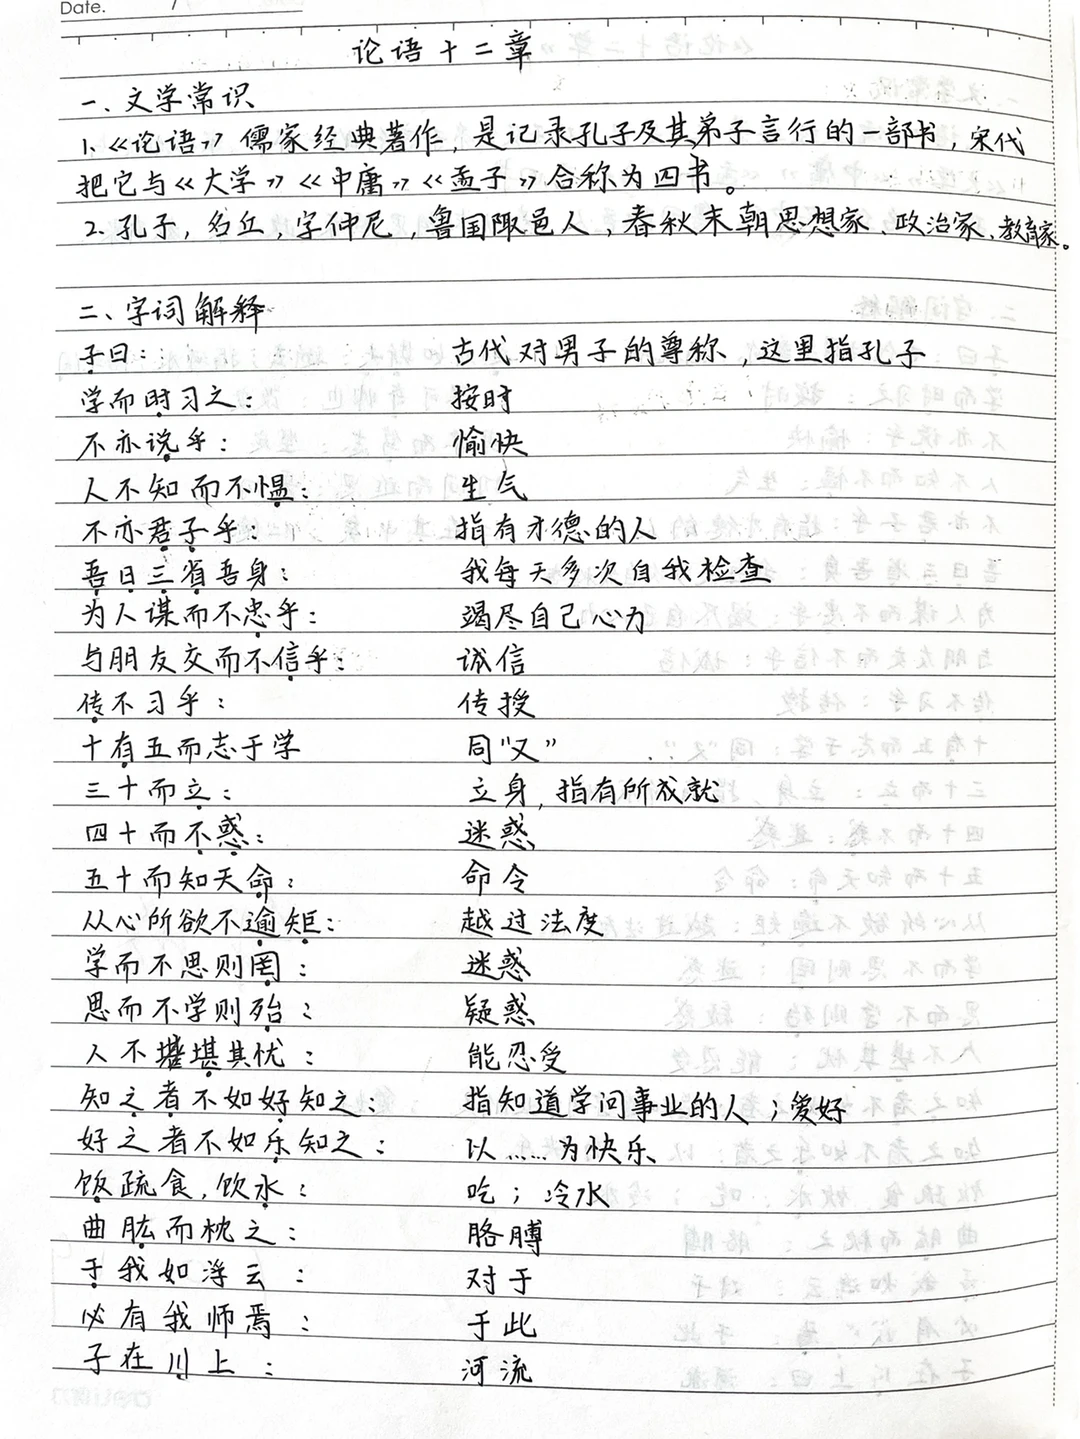 Date.
论语十二章
一、文学常识
1.《论语》儒家经典著作,是记录孔子及其弟子言行的一部书,宋代
把它与《大学》《中庸》《孟子》合称为四书。
2.孔子,名丘,字仲尼,鲁国陬邑人,春秋末朝思想家、政治家、教育家。
二、字词解释
子曰: 古代对男子的尊称,这里指孔子
学而时习之: 按时
不亦说乎: 愉快
人不知而不愠: 生气
不亦君子乎: 指有才德的人
吾日三省吾身: 我每天多次自我检查
为人谋而不忠乎: 竭尽自己心力
与朋友交而不信乎: 诚信
传不习乎: 传授
十有五而志于学 同"又"
三十而立: 立身,指有所成就
四十而不惑: 迷惑
五十而知天命: 命令
从心所欲不逾矩: 越过法度
学而不思则罔: 迷惑
思而不学则殆: 疑惑
人不堪其忧: 能忍受
知之者不如好知之: 指知道学问事业的人;爱好
好之者不如乐知之: 以……为快乐
饭疏食,饮水: 吃;冷水
曲肱而枕之: 胳膊
于我如浮云: 对于
必有我师焉: 于此
子在川上: 河流